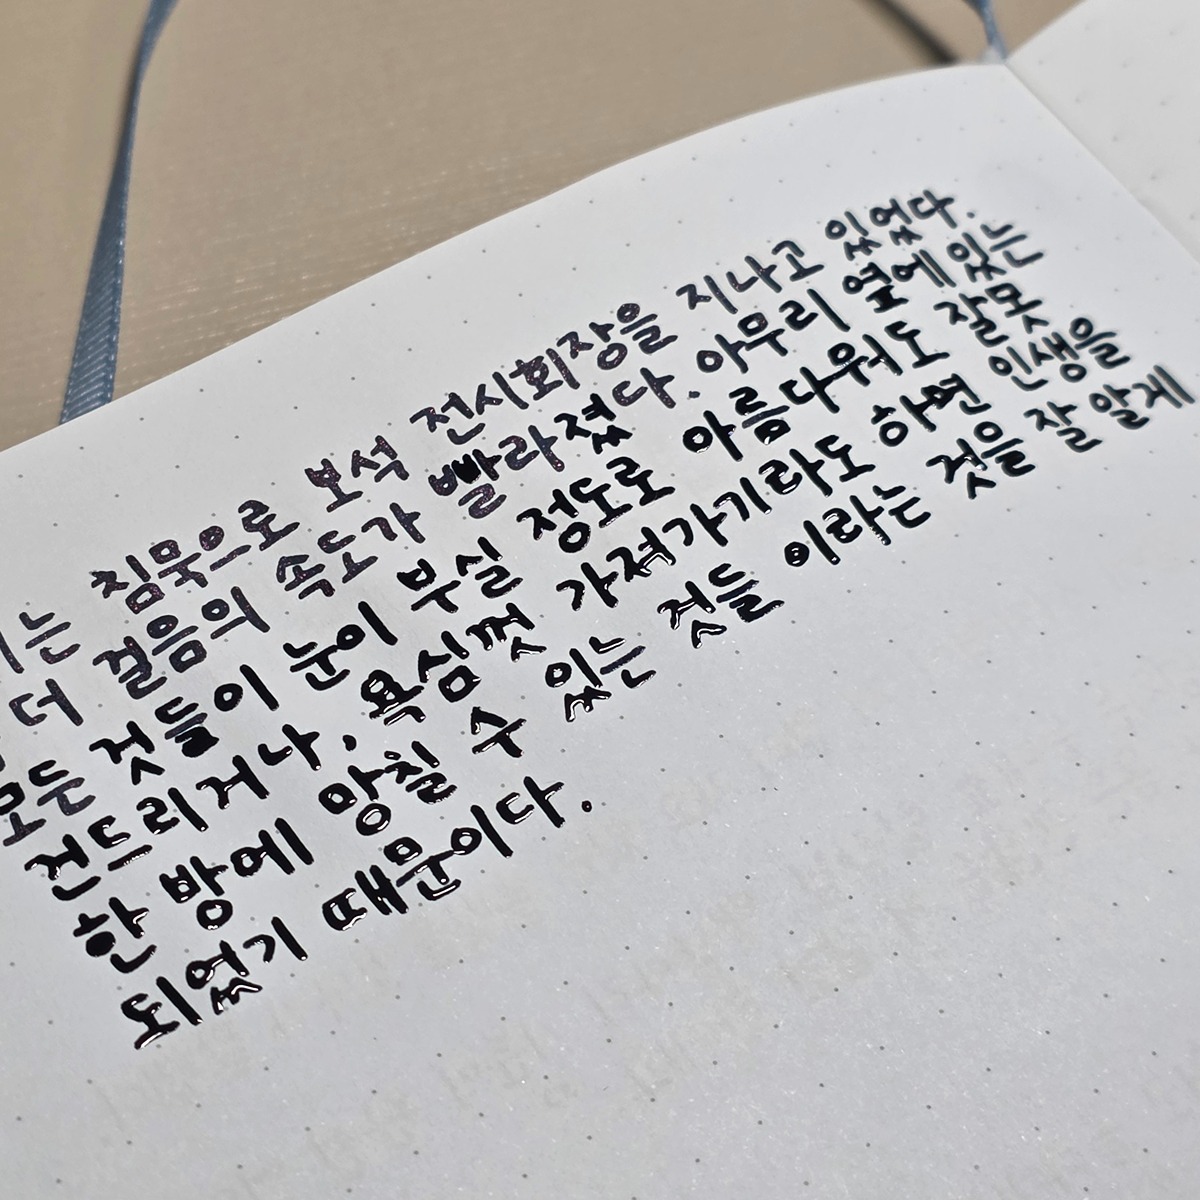 는 침묵으로 보석 전시회장을 지나고 있었다.
더 걸음의 속도가 빨라졌다. 아무리 옆에 있는
모든 것들이 눈이 부실 정도로 아름다워도 잘못
건드리거나, 욕심껏 가져가기라도 하면 인생을
한 방에 망칠 수 있는 것들 이라는 것을 잘 알게
되었기 때문이다.